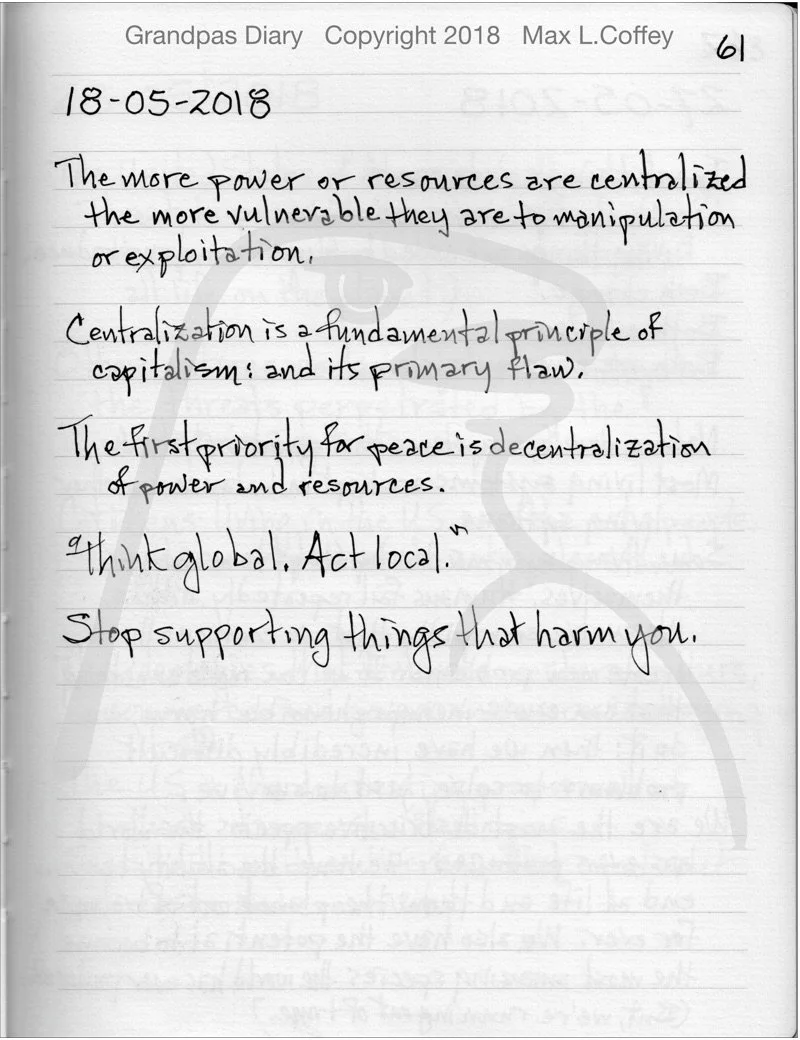 Grandpas Diary Copyright 2018 Max L.Coffey
61
18-05-2018
The more power or resources are centralized
the more vulnerable they are to manipulation
or exploitation.
Centralization is a fundamental principle of
capitalism: and its primary flaw.
The first priority for peace is decentralization
of power and resources.
"Think global. Act local."
Stop supporting things that harm you.